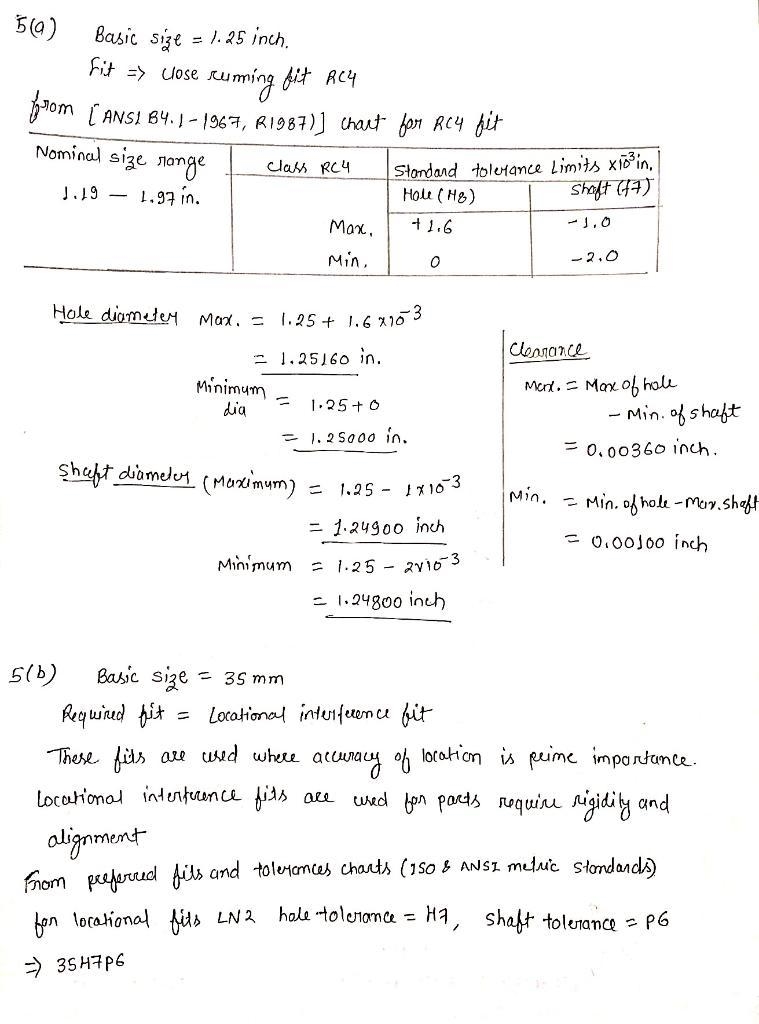 5(a) Basic size = 1.25 inch.
Fit => close running fit RC4
from [ANSI B4.1-1967, R1987)] chart for RC4 fit
Nominal size range
1.19 — 1.97 in.
Class RC4
Standard tolerance Limits x10⁻³in.
Hole (H8) Shaft (f7)
Max, +1.6 -1.0
Min, 0 -2.0
Hole diameter Max. = 1.25 + 1.6 x10⁻³
= 1.25160 in.
Minimum dia = 1.25 + 0
= 1.25000 in.
Shaft diameter (Maximum) = 1.25 - 1x10⁻³
= 1.24900 inch
Minimum = 1.25 - 2x10⁻³
= 1.24800 inch
Clearance
Max. = Max of hole
- Min. of shaft
= 0.00360 inch.
Min. = Min. of hole - Max. shaft
= 0.00100 inch
5(b) Basic size = 35 mm
Required fit = Locational interference fit
These fits are used where accuracy of location is prime importance.
Locational interference fits are used for parts require rigidity and
alignment
From preferred fits and tolerances charts (ISO & ANSI metric standards)
for locational fits LN2 hole tolerance = H7, shaft tolerance = P6
⇒ 35H7P6